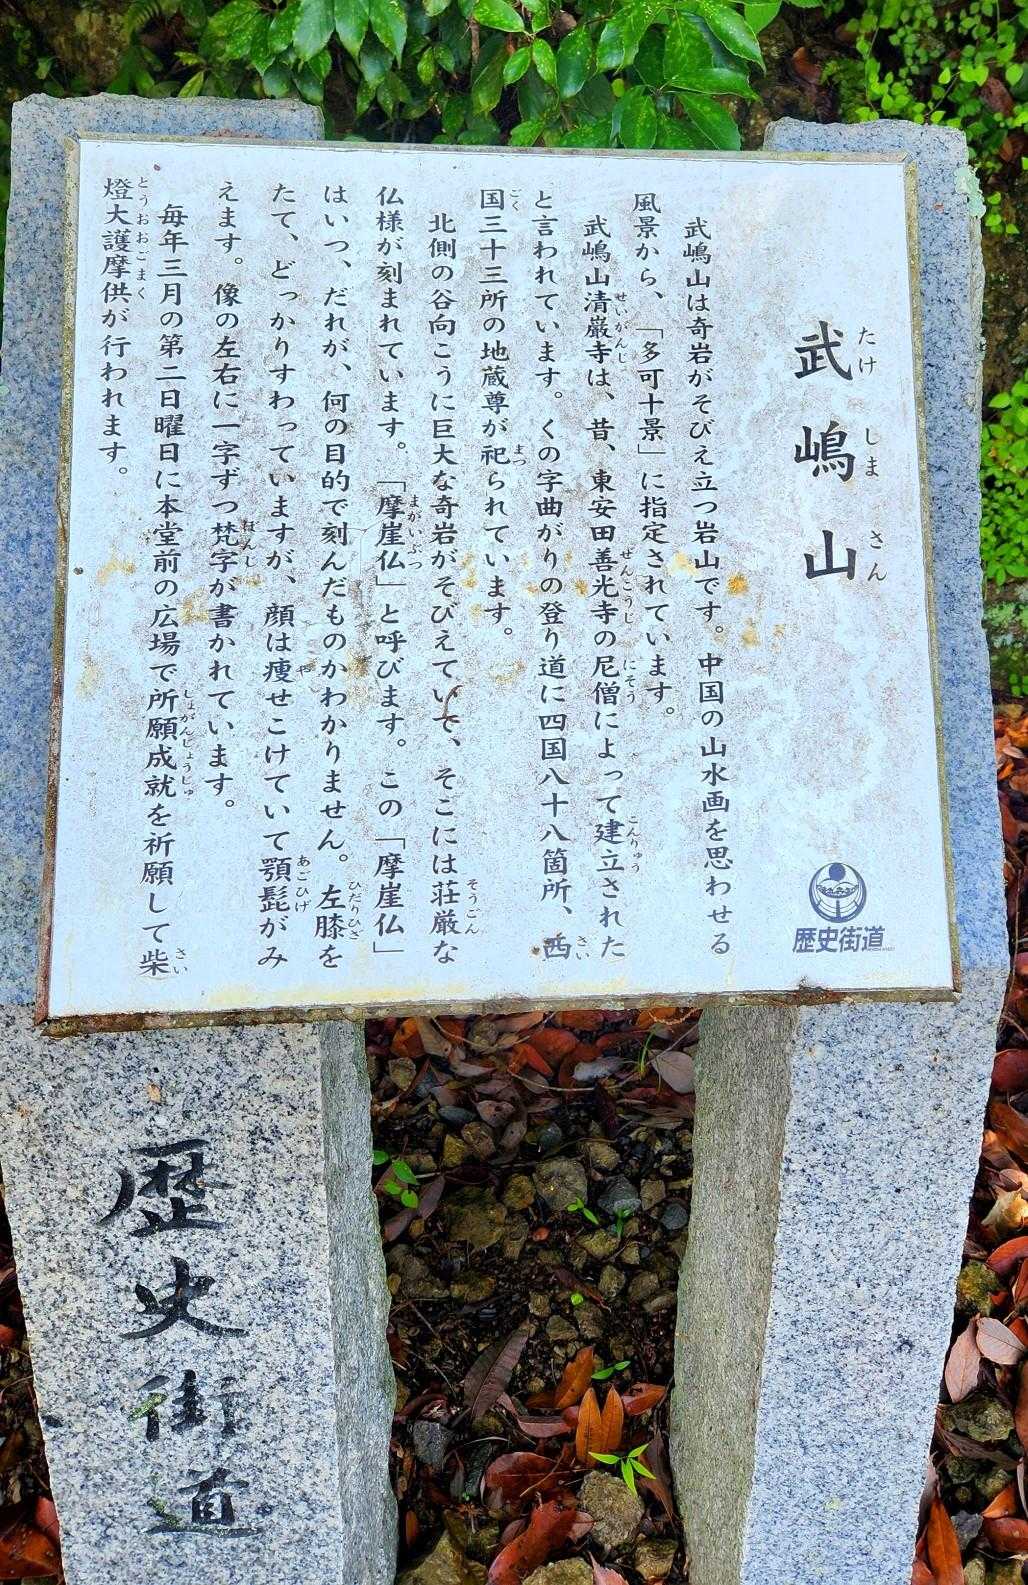 武嶋山
たけしまさん
武嶋山は奇岩がそびえ立つ岩山です。中国の山水画を思わせる
風景から、「多可十景」に指定されています。
武嶋山清巌寺は、昔、東安田善光寺の尼僧によって建立された
せいがんじ ぜんこうじ にそう こんりゅう
と言われています。くの字曲がりの登り道に四国八十八箇所、西
さい
国三十三所の地蔵尊が祀られています。
ごく まつ
北側の谷向こうに巨大な奇岩がそびえていて、そこには荘厳な
そうごん
仏様が刻まれています。「摩崖仏」と呼びます。この「摩崖仏」
まがいぶつ
はいつ、だれが、何の目的で刻んだものかわかりません。左膝を
ひだりひざ
たて、どっかりすわっていますが、顔は痩せこけていて顎髭がみ
や あごひげ
えます。像の左右に一字ずつ梵字が書かれています。
ぼんじ
毎年三月の第二日曜日に本堂前の広場で所願成就を祈願して柴
しょがんじょうじゅ さい
燈大護摩供が行われます。
とうおおごまく
歴史街道
歴史街道